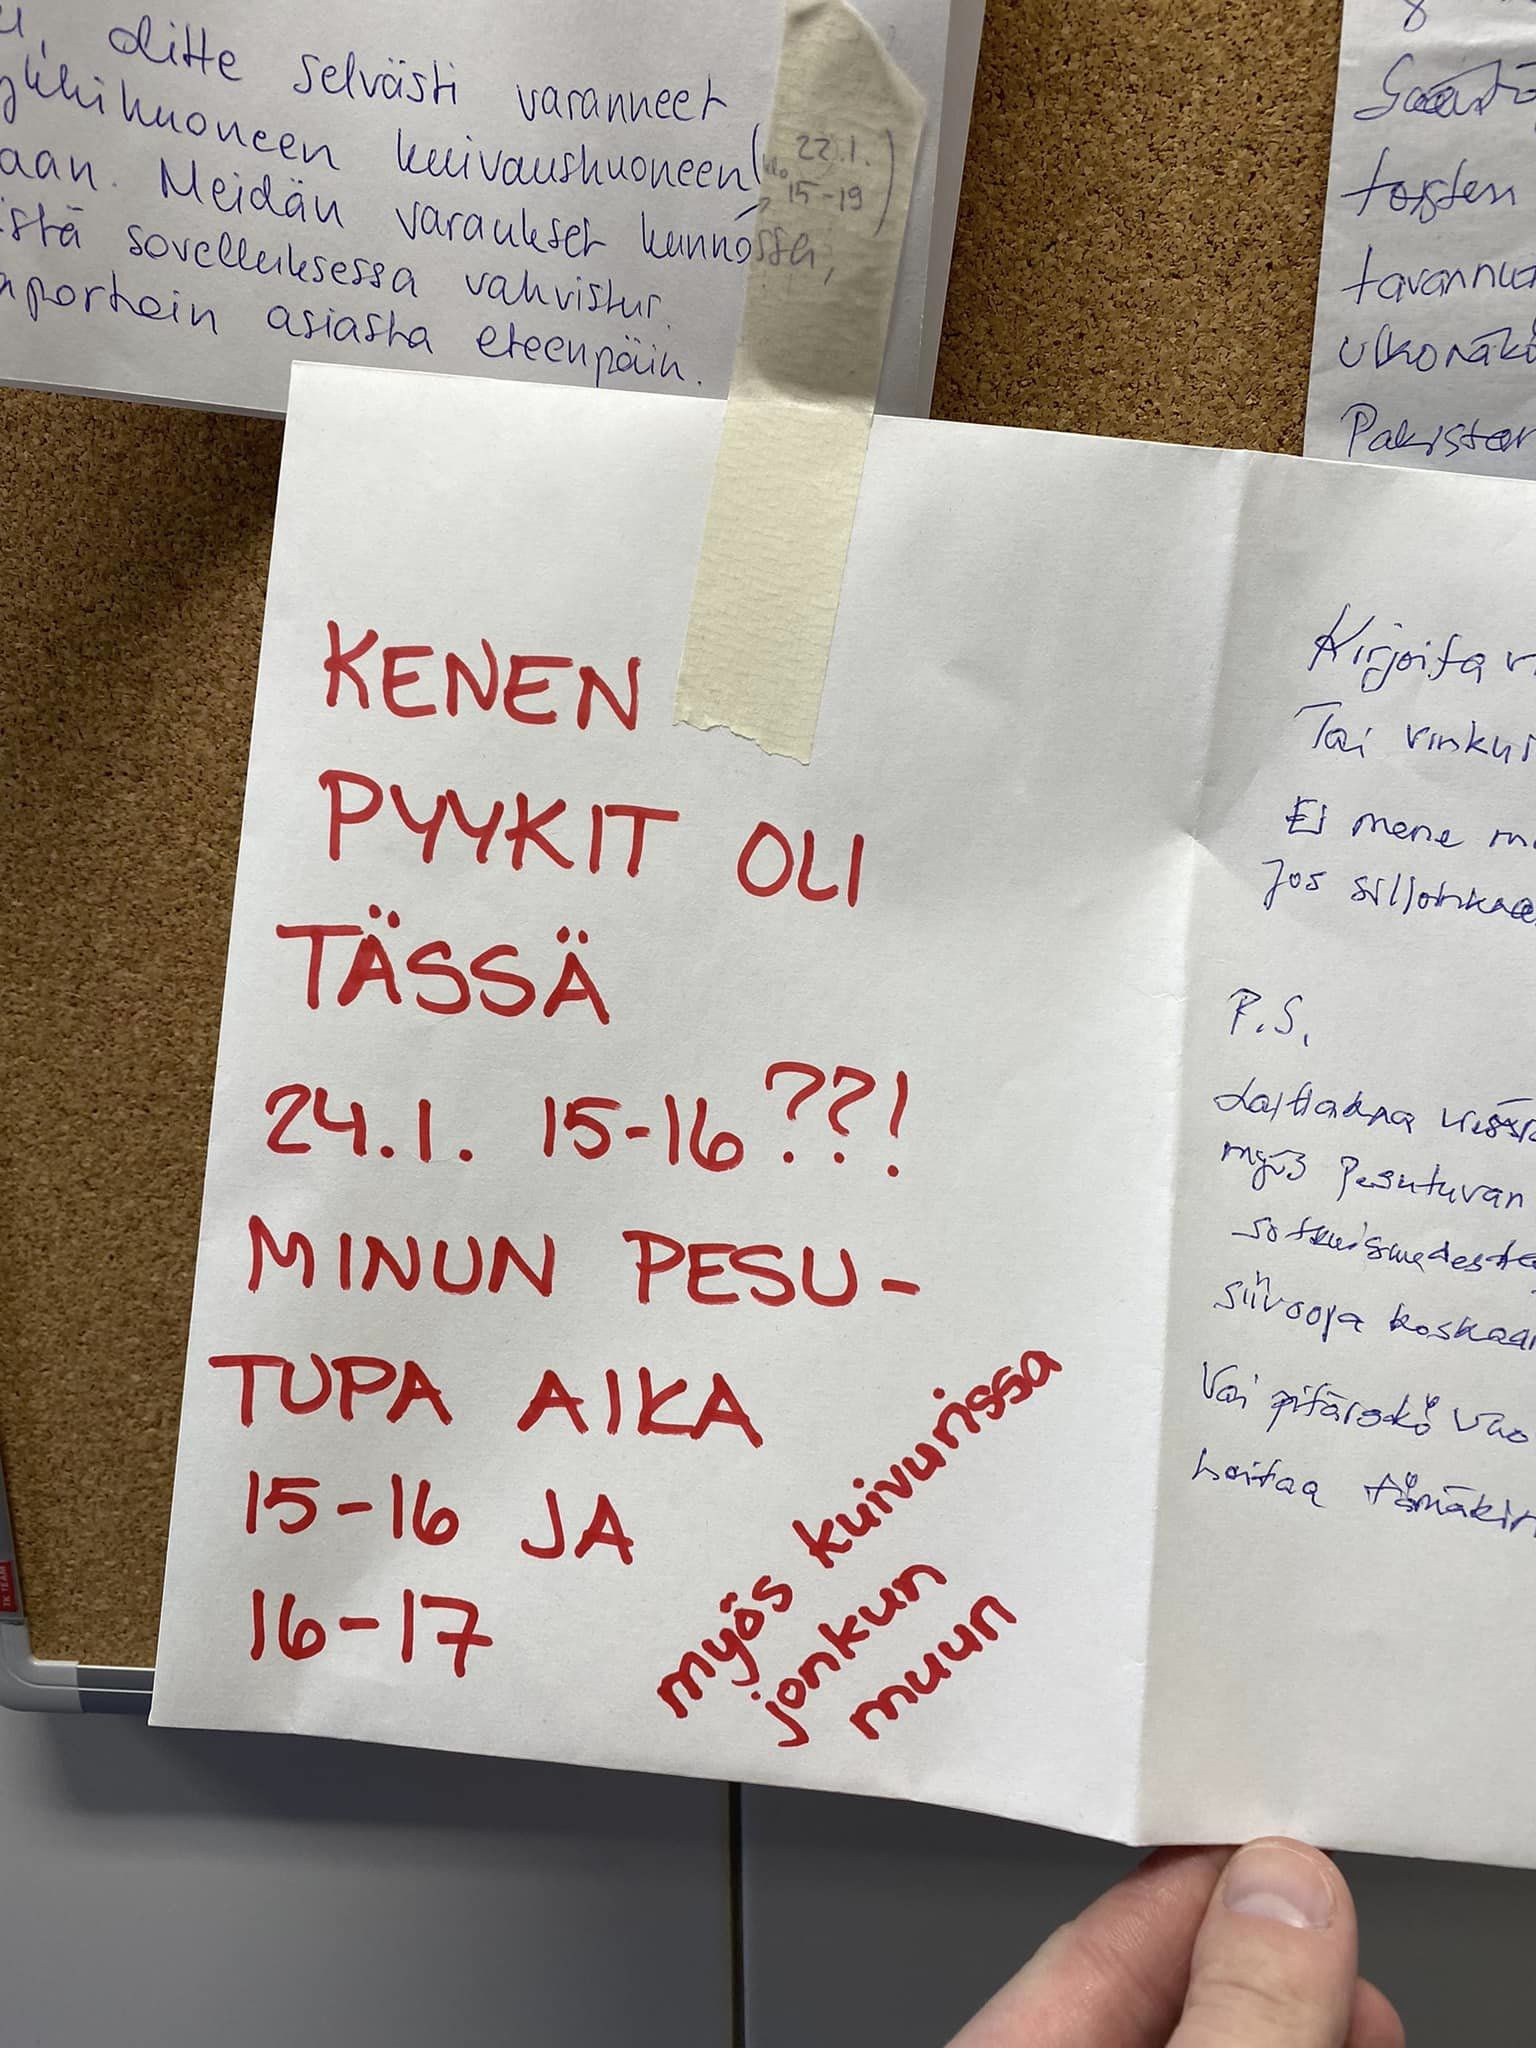 olitte selvästi varanneet
kuivaushuoneen (klo 22.1.
15-19)
aan. Meidän varaukset kunnossa,
istä sovelluksessa vahvistur.
aportoin asiasta eteenpäin.
toisten
tavannut
ulkonäkö
Pakistan
KENEN
PYYKIT OLI
TÄSSÄ
24.1. 15-16 ??!
MINUN PESU-
TUPA AIKA
15-16 JA
16-17
myös kuivurissa
jonkun
muun
Kirjoita v
Tai vinkui
Ei mene m
Jos silloinkaa
P.S.
Laittakaa viesti
myös Pesutuvan
sotkuisuudesta
siivooja koskaan
Vai pitäreskö
hoitaa tämäkin
TK TEAM